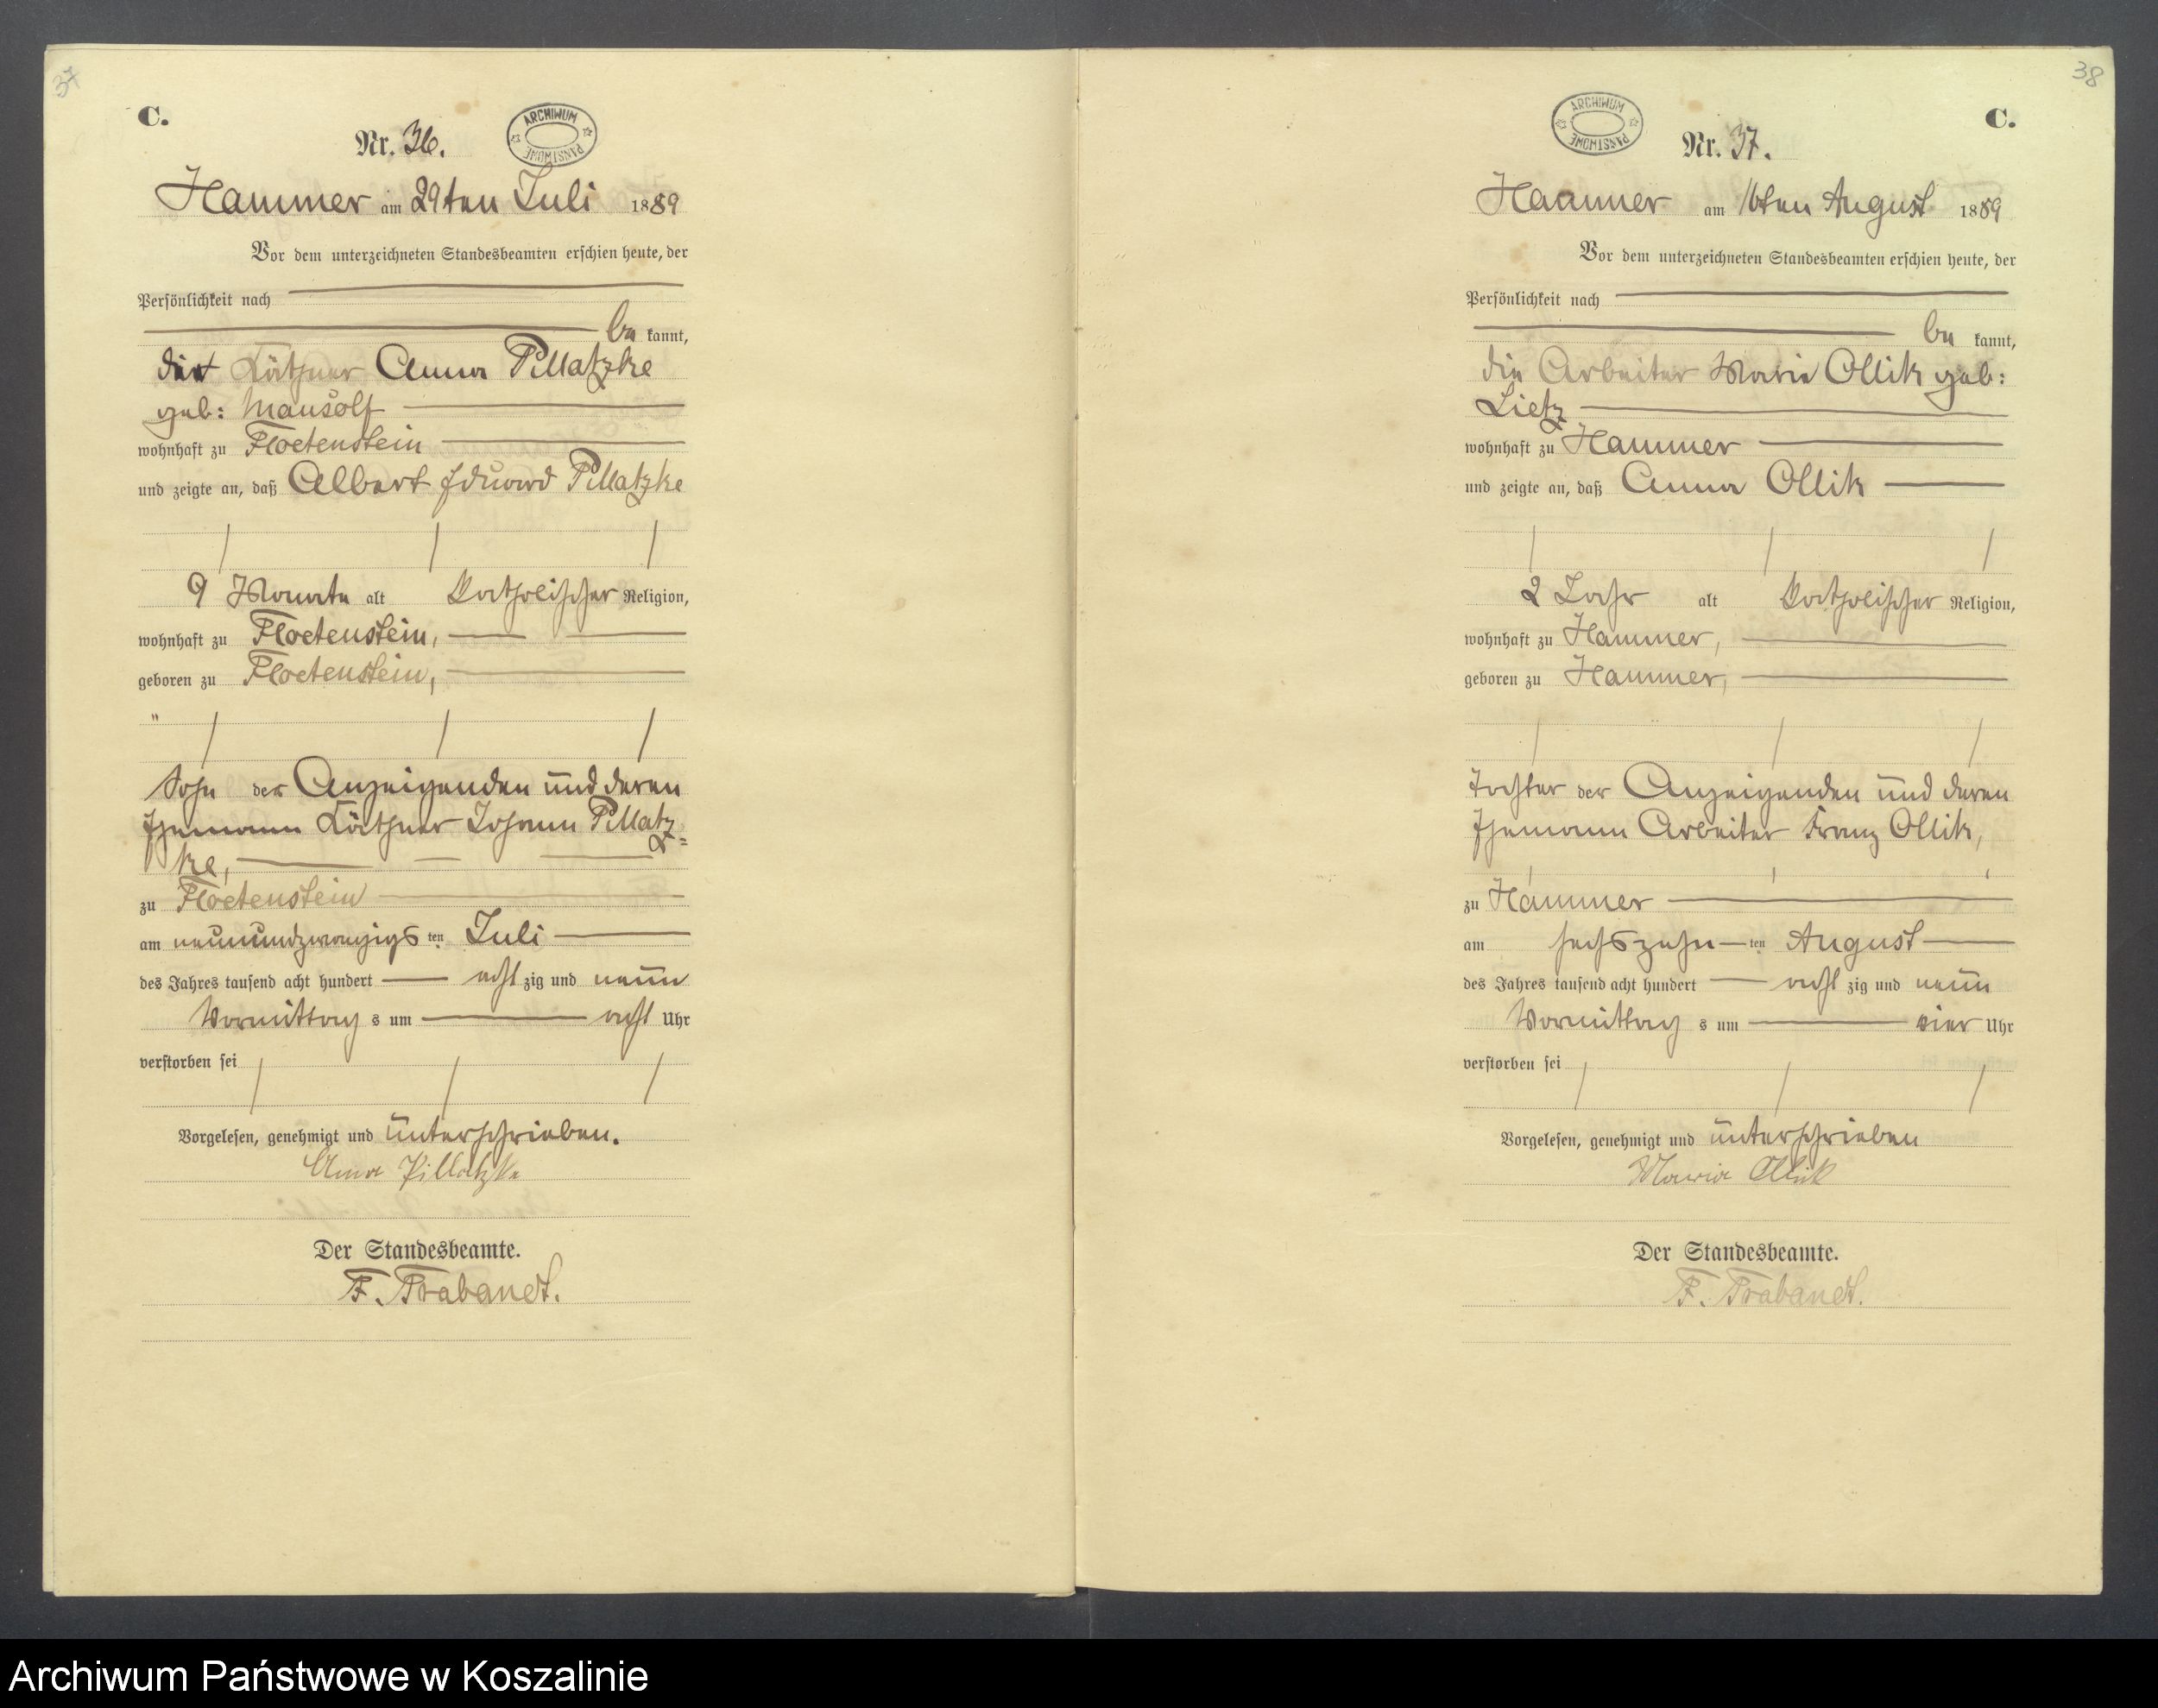 37
C.
Nr. 36.
ARCHIWUM PAŃSTWOWE
Hammer am 29ten Juli 1889
Vor dem unterzeichneten Standesbeamten erschien heute, der
Persönlichkeit nach
be kannt,
die Käthner Anna Pillatzke
geb: Mausolf
wohnhaft zu Floetenstein
und zeigte an, daß Albert Eduard Pillatzke
9 Monate alt Katholischer Religion,
wohnhaft zu Floetenstein,
geboren zu Floetenstein,
"
Sohn der Anzeigenden und deren
Ehemann Käthner Johann Pillatz=
ke,
zu Floetenstein
am neunundzwanzigs ten Juli
des Jahres tausend acht hundert acht zig und neun
Vormittag s um acht Uhr
verstorben sei
Vorgelesen, genehmigt und unterschrieben.
Anna Pillatzke
Der Standesbeamte.
F. Trabandt.
38
C.
ARCHIWUM PAŃSTWOWE
Nr. 37.
Hammer am 16ten August 1889
Vor dem unterzeichneten Standesbeamten erschien heute, der
Persönlichkeit nach
be kannt,
die Arbeiter Marie Ollik geb:
Lietz
wohnhaft zu Hammer
und zeigte an, daß Anna Ollik
2 Jahr alt Katholischer Religion,
wohnhaft zu Hammer,
geboren zu Hammer,
Tochter der Anzeigenden und deren
Ehemann Arbeiter Franz Ollik,
zu Hammer
am sechszehn ten August
des Jahres tausend acht hundert acht zig und neun
Vormittag s um vier Uhr
verstorben sei
Vorgelesen, genehmigt und unterschrieben
Maria Ollik
Der Standesbeamte.
F. Trabandt.
Archiwum Państwowe w Koszalinie